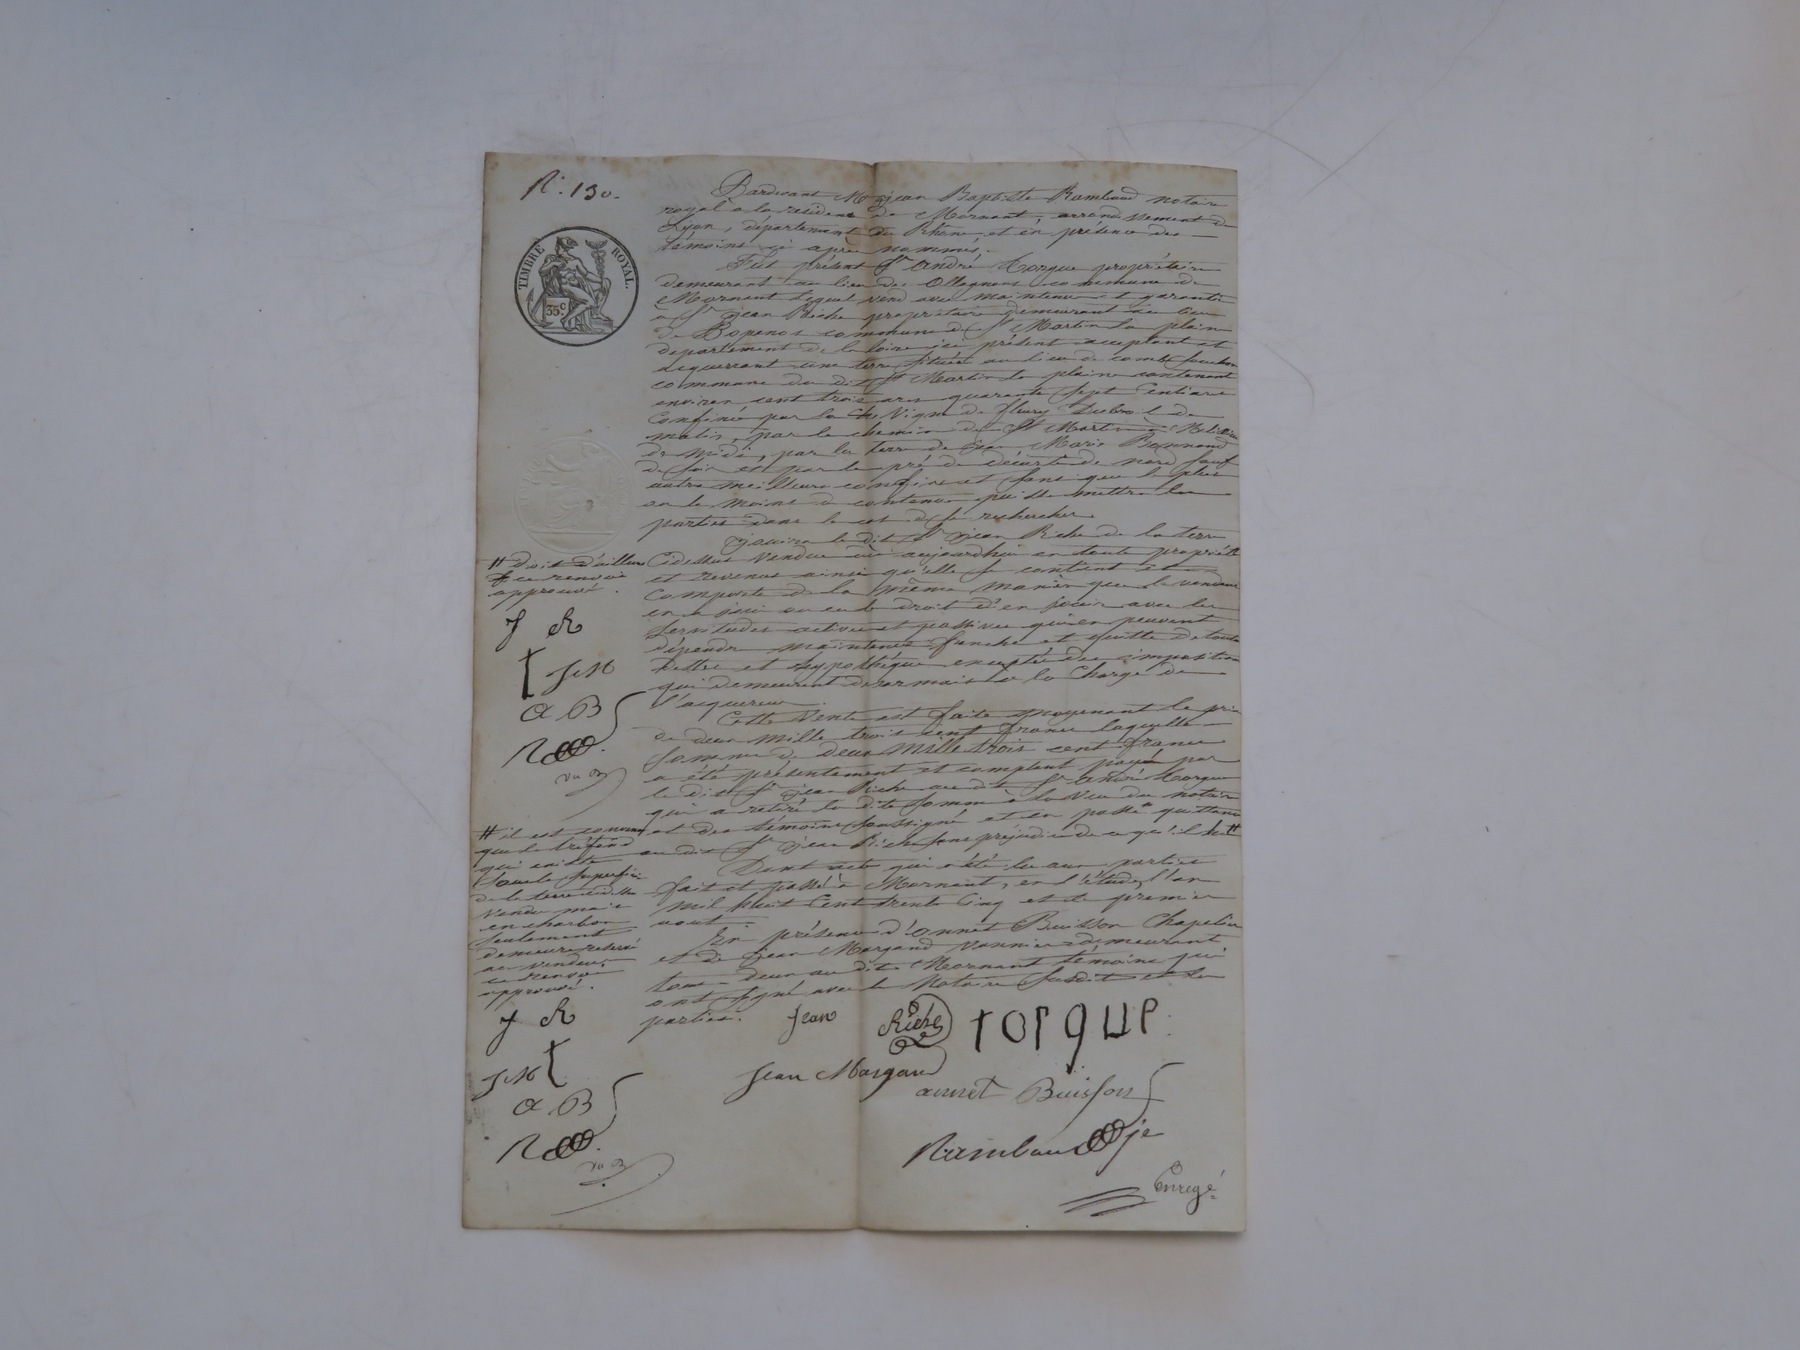 N.° 130.
TIMBRE ROYAL.
35 C
Pardevant Me jean Baptiste Rambaud notaire
royal à la residence de Mornant, arrondissement de
Lyon, département du Rhône, et en présence des
témoins ci après nommés.
Fut présent Sr André torque propriétaire
demeurant au lieu des Ollagnons commune de
Mornant Lequel vend avec maintenue et garantie
à Sr jean Riche propriétaire demeurant au lieu
de commune de St Martin la plaine
departement de la loire ici présent acceptant et
acquerrant une terre située au lieu de combe
commune du dit St Martin la plaine contenant
environ cent trois ares quarante sept Centiares
Confinée par la vigne de fleury de
matin, par le chemin de St Martin à
de midi, par la terre de jean Marie Bonnand
de soir et par le pré de de nord sauf
autres meilleurs confins et sans que le plus
ou le moins de contenu puisse mettre les
parties dans le cas de se rechercher.
jouira le dit Sr jean Riche de la terre
Cidessus Vendue dès aujourdhui en toute propriété
et revenus ainsi qu'elle se contient et
comporte de la même manière que le vendeur
en a joui ou eu le droit d'en jouir avec les
servitudes actives et passives qui en peuvent
dépendre maintenue franche et quitte de toute
dettes et hypothèques exceptée des impositions
qui demeurent desormais à la Charge de
l'acquereur.
Cette Vente est faite moyenant le prix
de deux mille trois cent francs laquelle
somme de deux mille trois cent francs
a été présentement et comptant payée par
le dit Sr jean Riche au dit Sr André torque
qui a retiré la dite somme à la vue du notaire
et des témoins soussignés et en passe quittance
au dit Sr jean Riche sans préjudice de ce qu'il lui #
Dont acte qui a été lu aux parties
fait et passé à Mornant, en l'étude, l'an
mil huit Cent trente Cinq et le premier
aout.
En présence d'annet Buisson Chapelier
et de jean Margand vannier demeurant
tous deux au dit Mornant témoins qui
ont signé avec le Notaire susdit et les
parties.
# Doit d'ailleurs
ce renvoi
approuvé.
J R
t
J M
a B
R
# il est convenu
que le tréfond
qui existe
sous la superficie
de la terre cidessus
vendue mais
en charbon
seulement
demeure reservé
au vendeur
ce renvoi
approuvé.
J R
J M t
a B
R
Jean Riche torque
Jean Margand
annet Buisson
Rambaud je
Enregé